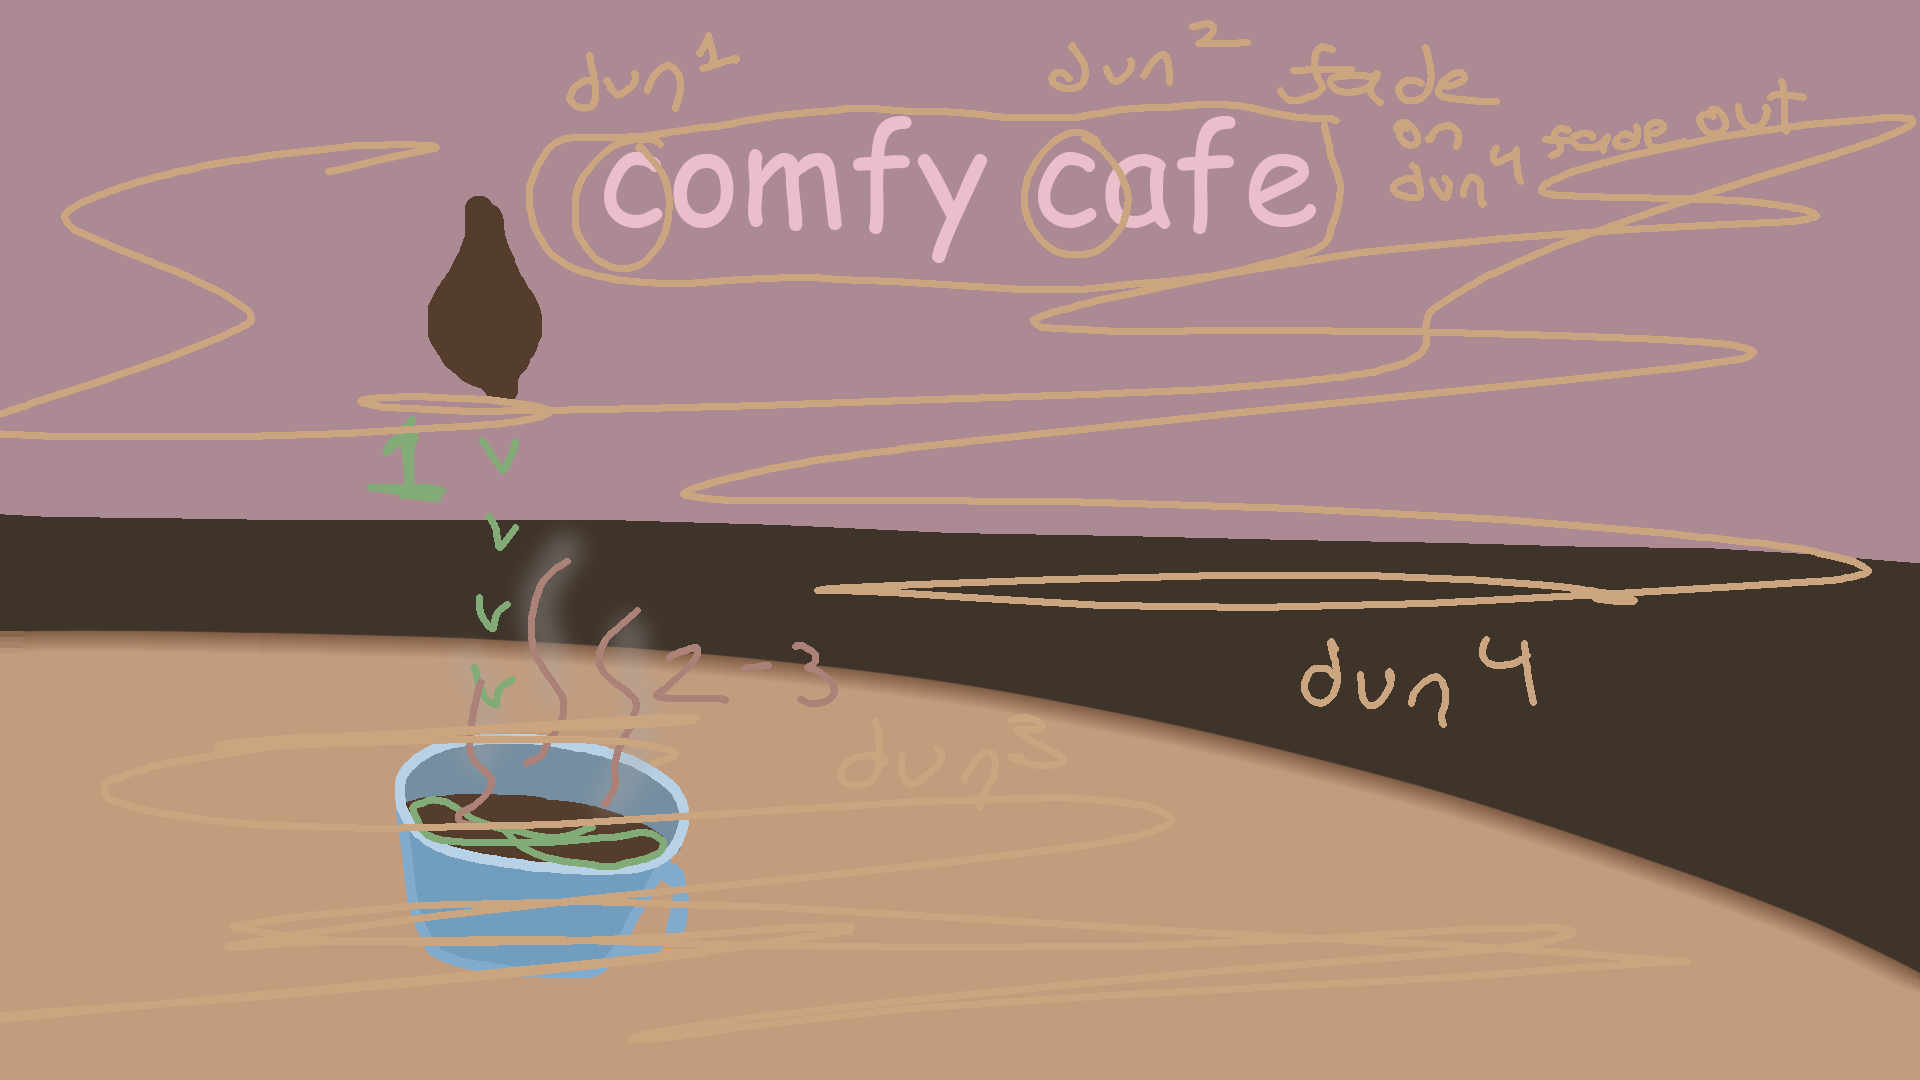 dun¹ dun² fade
on
dun⁴ fade out
comfy cafe
1 v
v
v
v
2-3
dun³
dun⁴